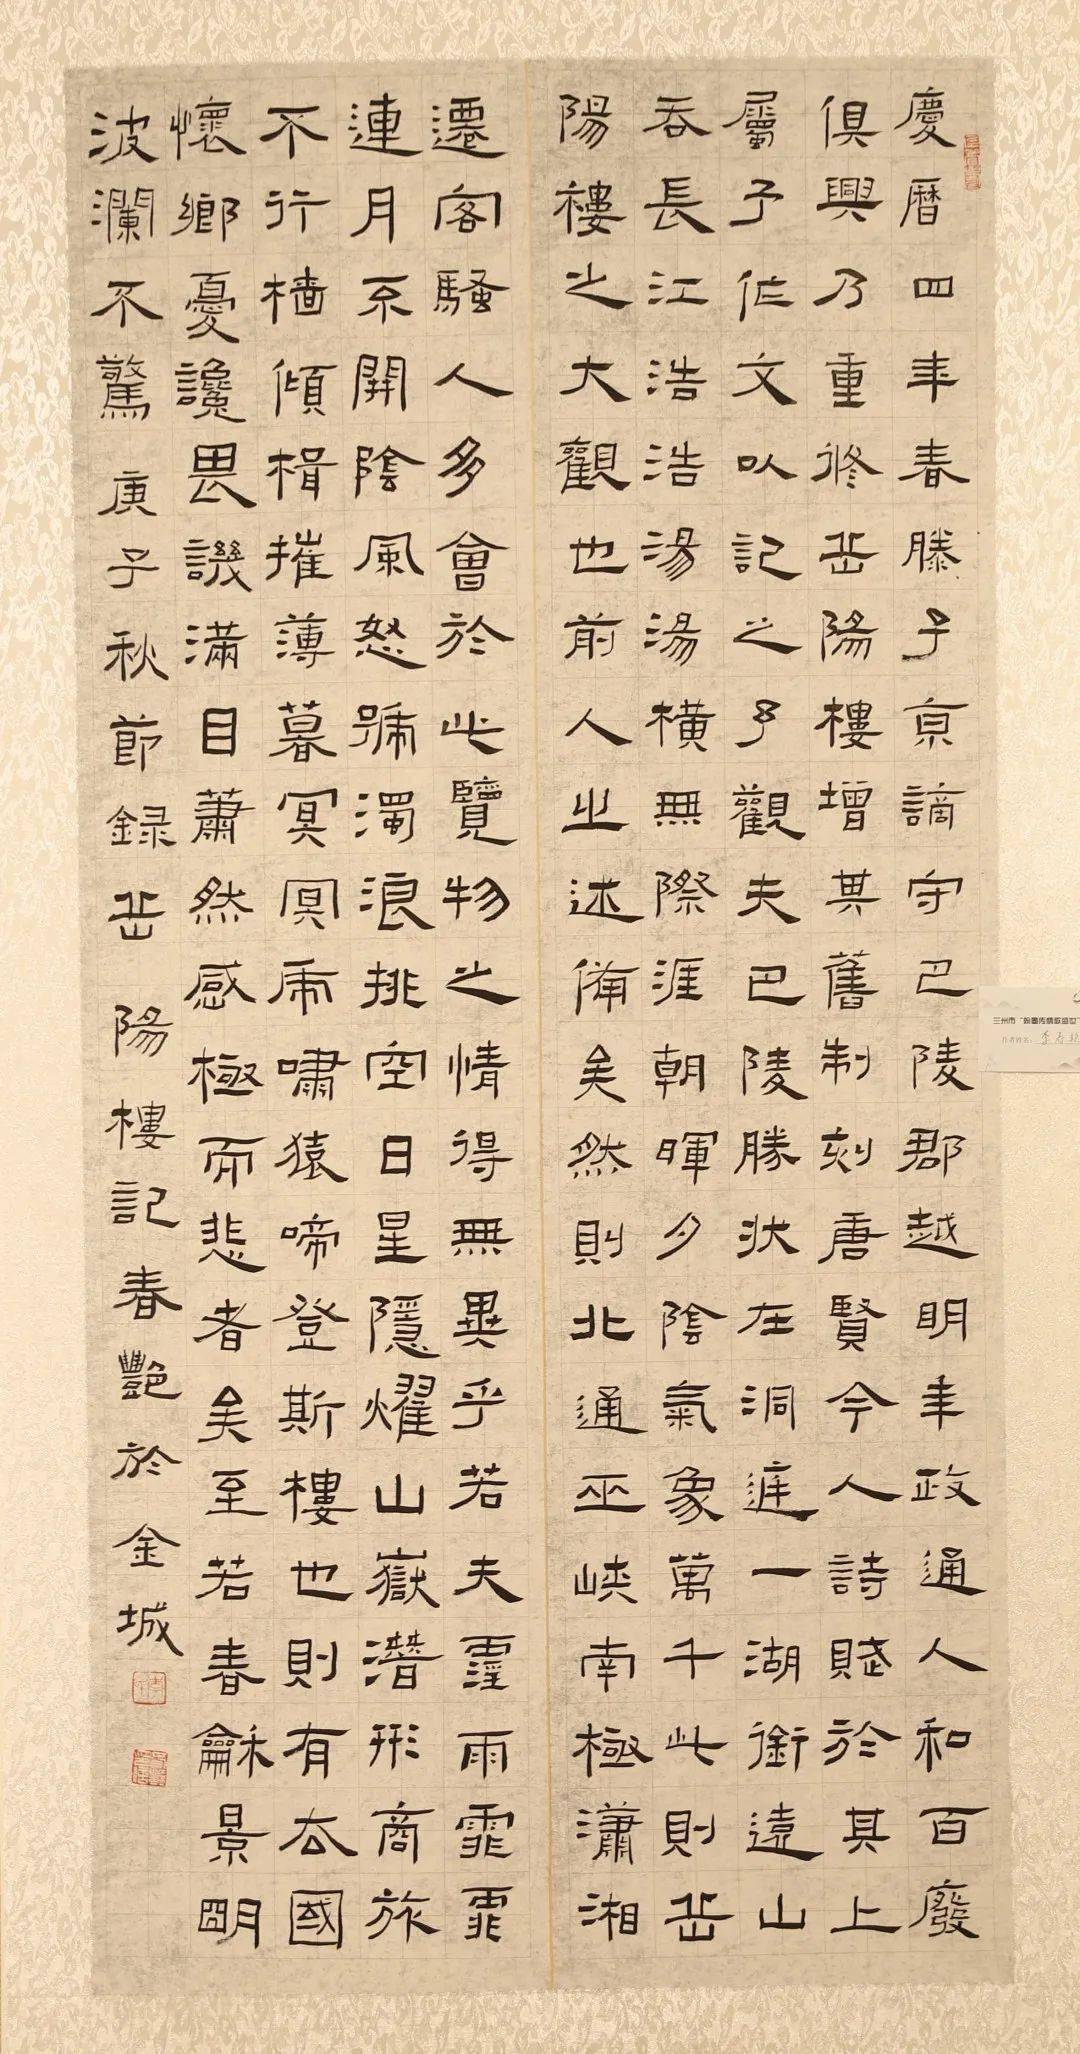 慶曆四年春滕子京謫守巴陵郡越明年政通人和百廢
俱興乃重修岳陽樓增其舊制刻唐賢今人詩賦於其上
屬予作文以記之予觀夫巴陵勝狀在洞庭一湖銜遠山
吞長江浩浩湯湯橫無際涯朝暉夕陰氣象萬千此則岳
陽樓之大觀也前人之述備矣然則北通巫峽南極瀟湘
遷客騷人多會於此覽物之情得無異乎若夫霪雨霏霏
連月不開陰風怒號濁浪排空日星隱耀山嶽潛形商旅
不行檣傾楫摧薄暮冥冥虎嘯猿啼登斯樓也則有去國
懷鄉憂讒畏譏滿目蕭然感極而悲者矣至若春龢景明
波瀾不驚 庚子秋節録岳陽樓記春豔於金城
兰州市“翰墨传情歌盛世”